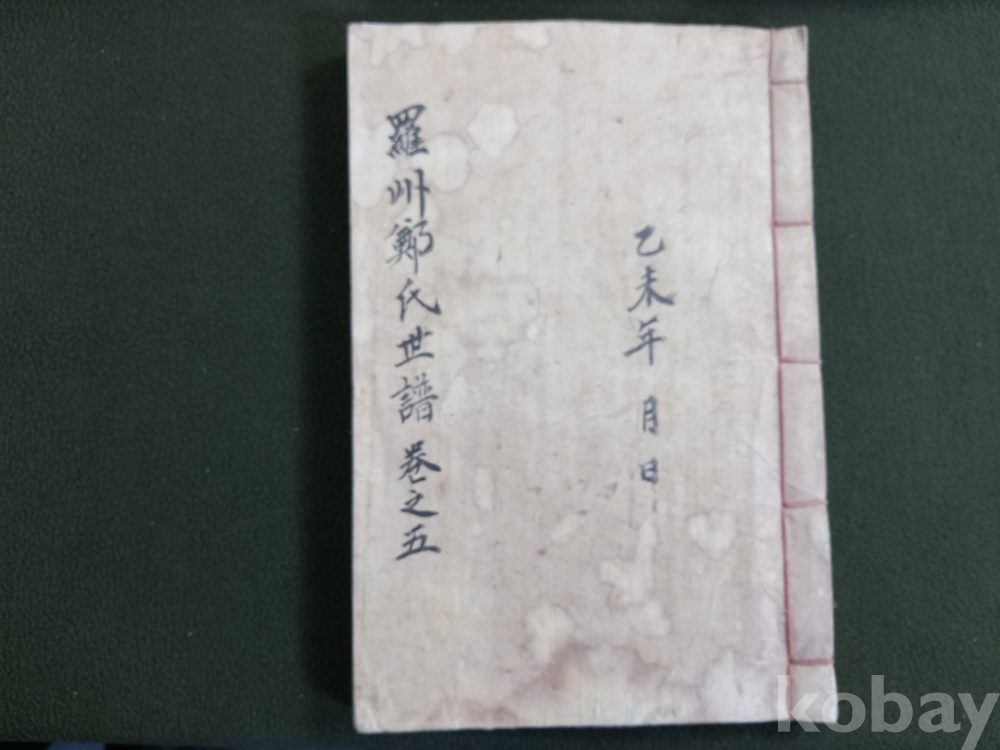 乙未年 月 日
羅州鄭氏世譜 卷之五
kobay